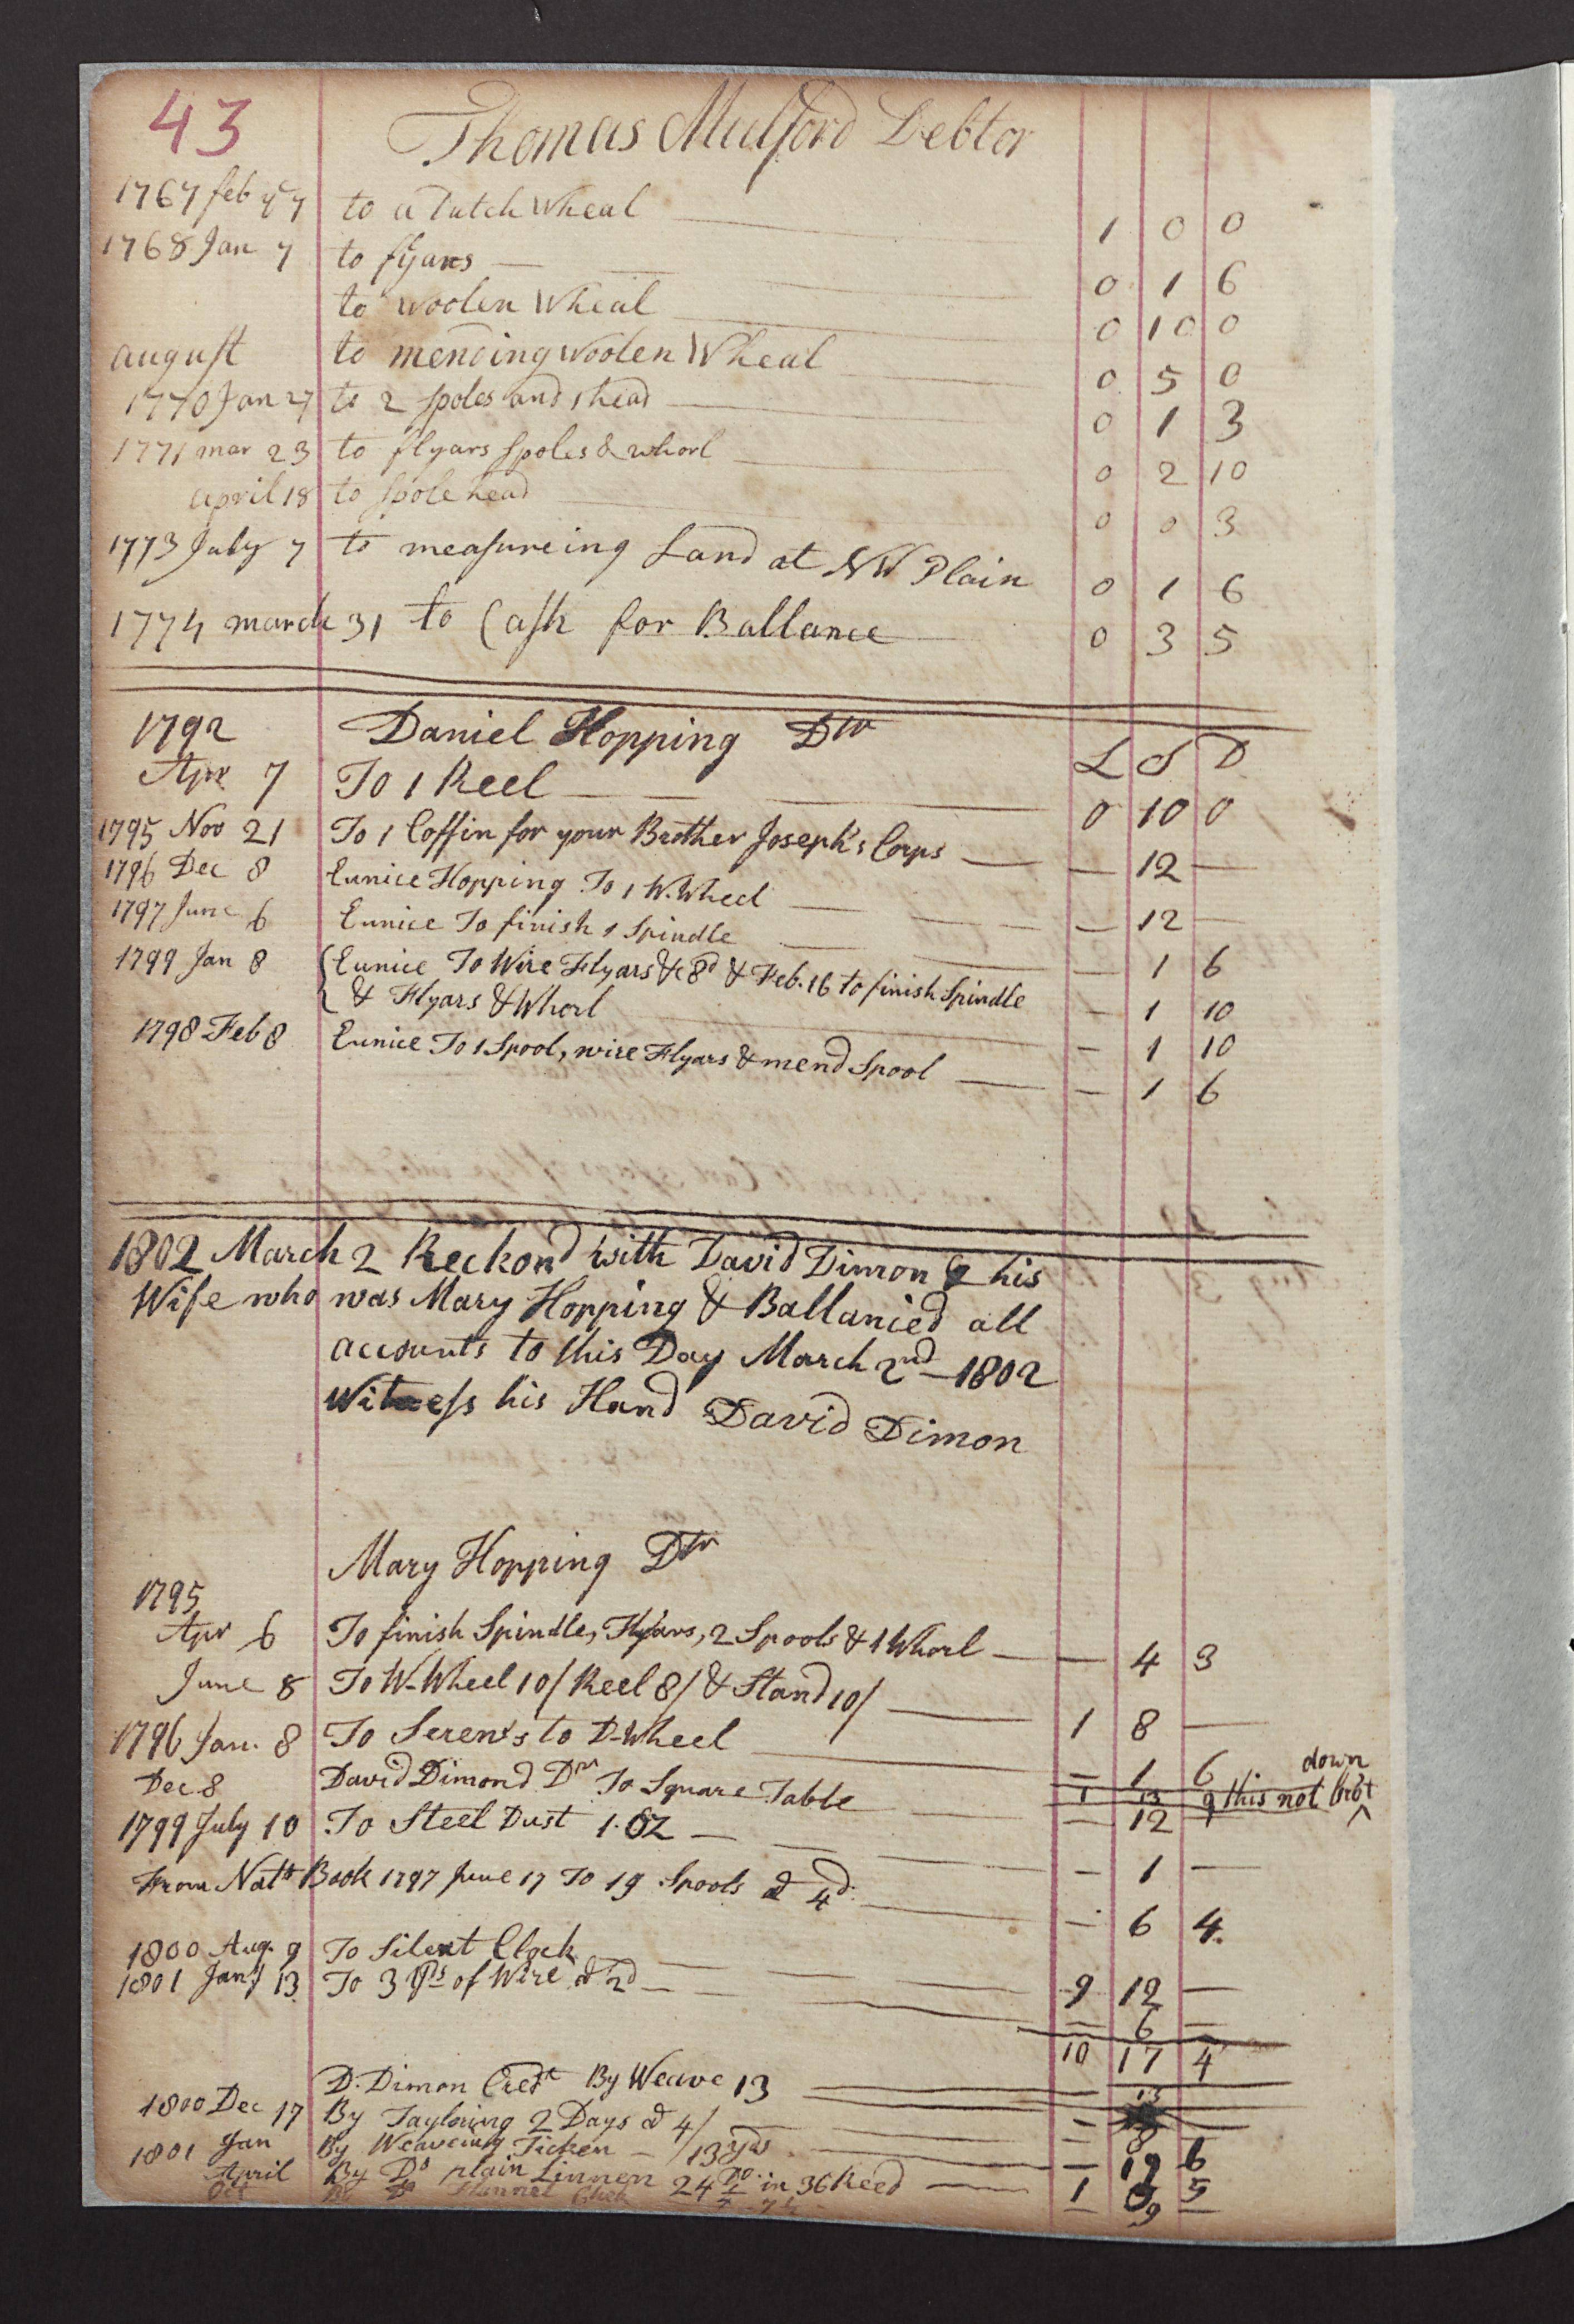 43 Thomas Mulford Debtor
1767 feb ye 7 to a Dutch Wheal 1 0 0
1768 Jan 7 to flyars 0 1 6
to woolen Wheal 0 10 0
august to mending woolen Wheal 0 5 0
1770 Jan 27 to 2 spoles and 1 head 0 1 3
1771 mar 23 to flyars spoles & whorl 0 2 10
april 18 to spole head 0 0 3
1773 July 7 to measureing Land at NW Plain 0 1 6
1774 march 31 to Cash for Ballance 0 3 5
1792 Daniel Hopping Dtr L S D
Apr 7 To 1 Reel 0 10 0
1795 Nov 21 To 1 Coffin for your Brother Joseph's Corps — 12 —
1796 Dec 8 Eunice Hopping To 1 W. Wheel — 12 —
1797 June 6 Eunice To finish 1 Spindle — 1 6
1799 Jan 8 Eunice To Wire Flyars &c 8d & Feb. 16 to finish Spindle — 1 10
& Flyars & Whorl — 1 10
1798 Feb 8 Eunice To 1 Spool, wire Flyars & mend Spool — 1 6
1802 March 2 Reckond with David Dimon & his
Wife who was Mary Hopping & Ballanced all
accounts to this Day March 2nd — 1802
Witness his Hand David Dimon
Mary Hopping Dtr
1795
Apr 6 To finish Spindle, Flyars, 2 Spools & 1 Whorl — 4 3
June 8 To W-Wheel 10/ Reel 8/ & Stand 10/ 1 8 —
1796 Jan. 8 To Screws to D-Wheel — 1 6
down
1 13 9 this not brot ^
Dec 8 David Dimond Dtr To Square Table — 12 —
1799 July 10 To Steel Dust 1 OZ — 1 —
From Nats Book 1797 June 17 To 19 Spools @ 4d — 6 4
1800 Aug. 9 To Silent Clock 9 12 —
1801 Jany 13 To 3 of Wire @ 2d — 6 —
10 17 4
D. Dimon Credt By Weave 13 — 13 —
1800 Dec 17 By Tayloring 2 Days @ 4/ — 8 —
1801 Jan By Weaveing Ticken — 13 yds — 19 6
April By Do plain Linnen 24 Do in 36 Reed 1 5
Oct By Do Flannel — 9 —